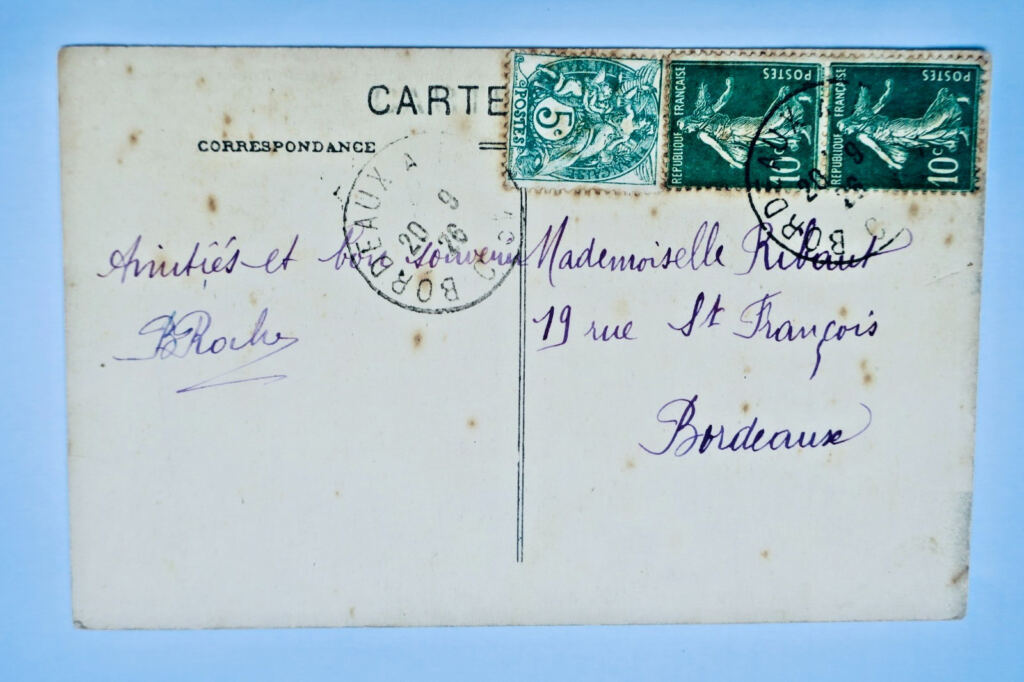 CARTE
CORRESPONDANCE
5c
POSTES
REPUBLIQUE FRANÇAISE
POSTES
10c
REPUBLIQUE FRANÇAISE
POSTES
10c
BORDEAUX
20 9
26
BORDEAUX
20 9
26
Amitiés et bon souvenir
BRoche
Mademoiselle Ribaut
19 rue St François
Bordeaux